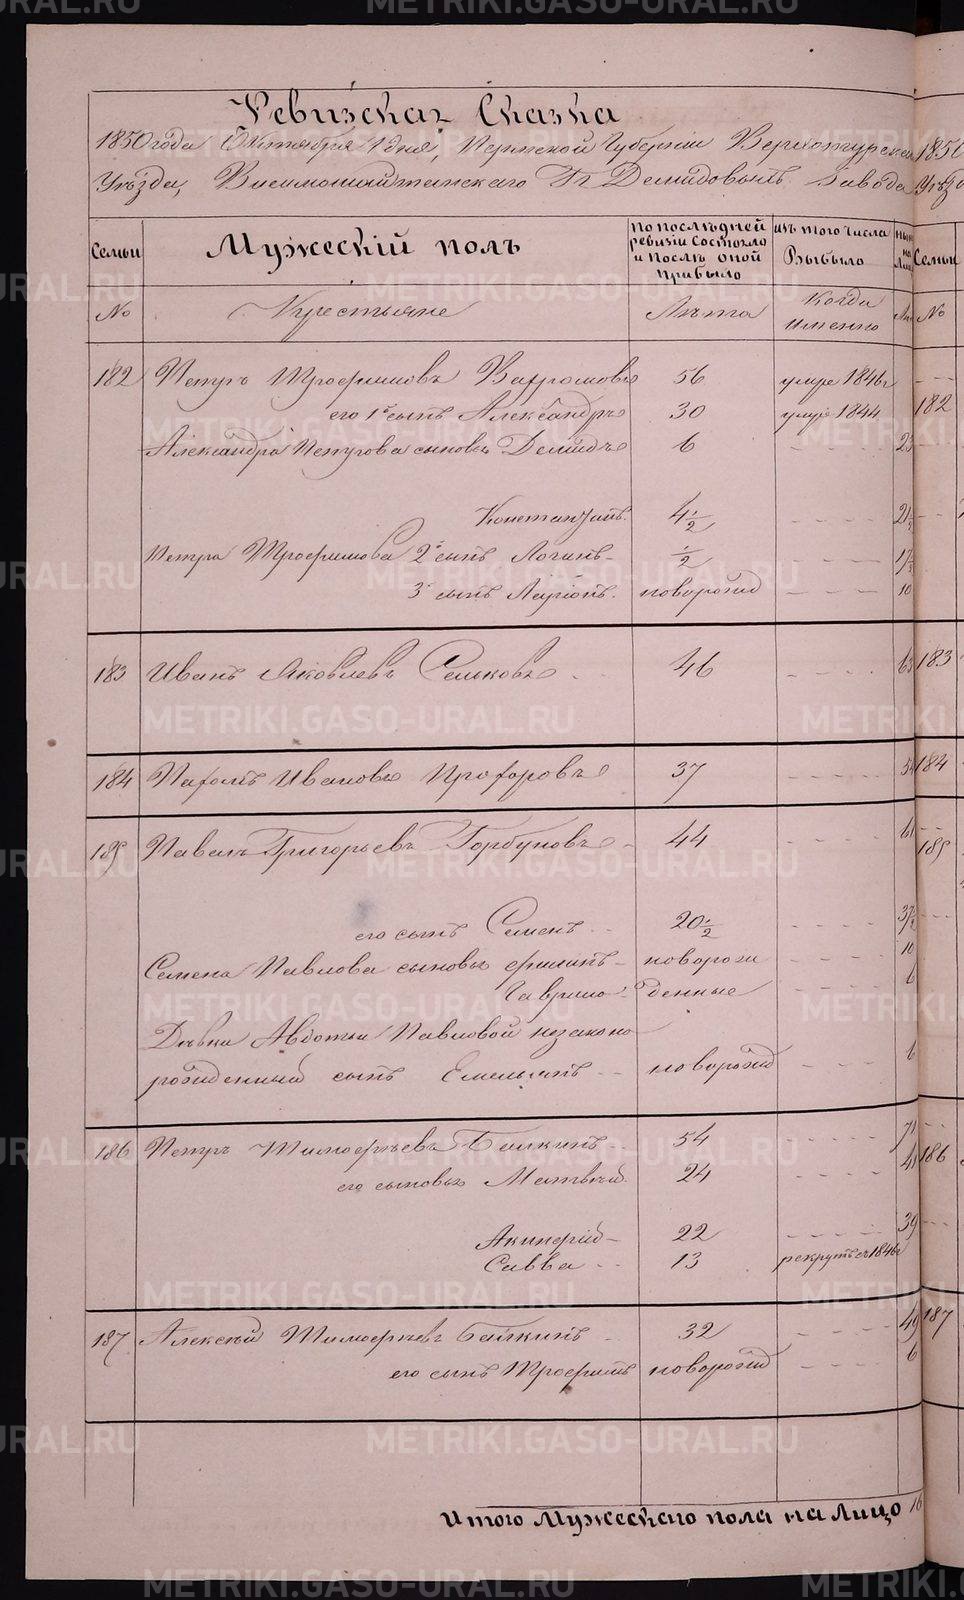 Ревизская Сказка
1850 года Октября 1 дня, Пермской Губернии Верхотурскаго
Уѣзда, Висимошайтанскаго Гг Демидовыхъ Завода
Семьи
Мужескій полъ
по послѣдней ревизіи состояло и послѣ оной прибыло
изъ того числа Выбыло
Семьи
№
Крестьяне
Лѣта
Когда именно
Лѣ
№
182 Петръ Трофимовъ 56 умре 1846г
его 1й сынъ Александръ 30 умре 1844 182
Александра Петрова сыновья Демидъ 6
Константинъ 4½ 21½
Петра Трофимова 2й сынъ Логинъ ½ 17½
3й сынъ Ларіонъ новорожд 10
183 Иванъ Яковлевъ Сельковъ 46 63 183
184 Пафомъ Ивановъ Прохоровъ 37 54 184
185 Павелъ Григорьевъ Горбуновъ 44 61 185
его сынъ Семенъ 20½ 37½
Семена Павлова сыновья Филипъ новорож 10
Гаврило денные 6
Дѣвки Авдотьи Павловой незаконо
рожденный сынъ Емельянъ новорожд 6
186 Петръ Тимофѣевъ Балкинъ 54 71 186
его сыновья Матвѣй 24 41
Акинфій 22 39
Савва 13 рекрутъ съ 1846г
187 Алексѣй Тимофѣевъ Балкинъ 32 49 187
его сынъ Трофимъ новорожд 6
Итого Мужескаго пола на Лицо 16
METRIKI.GASO-URAL.RU